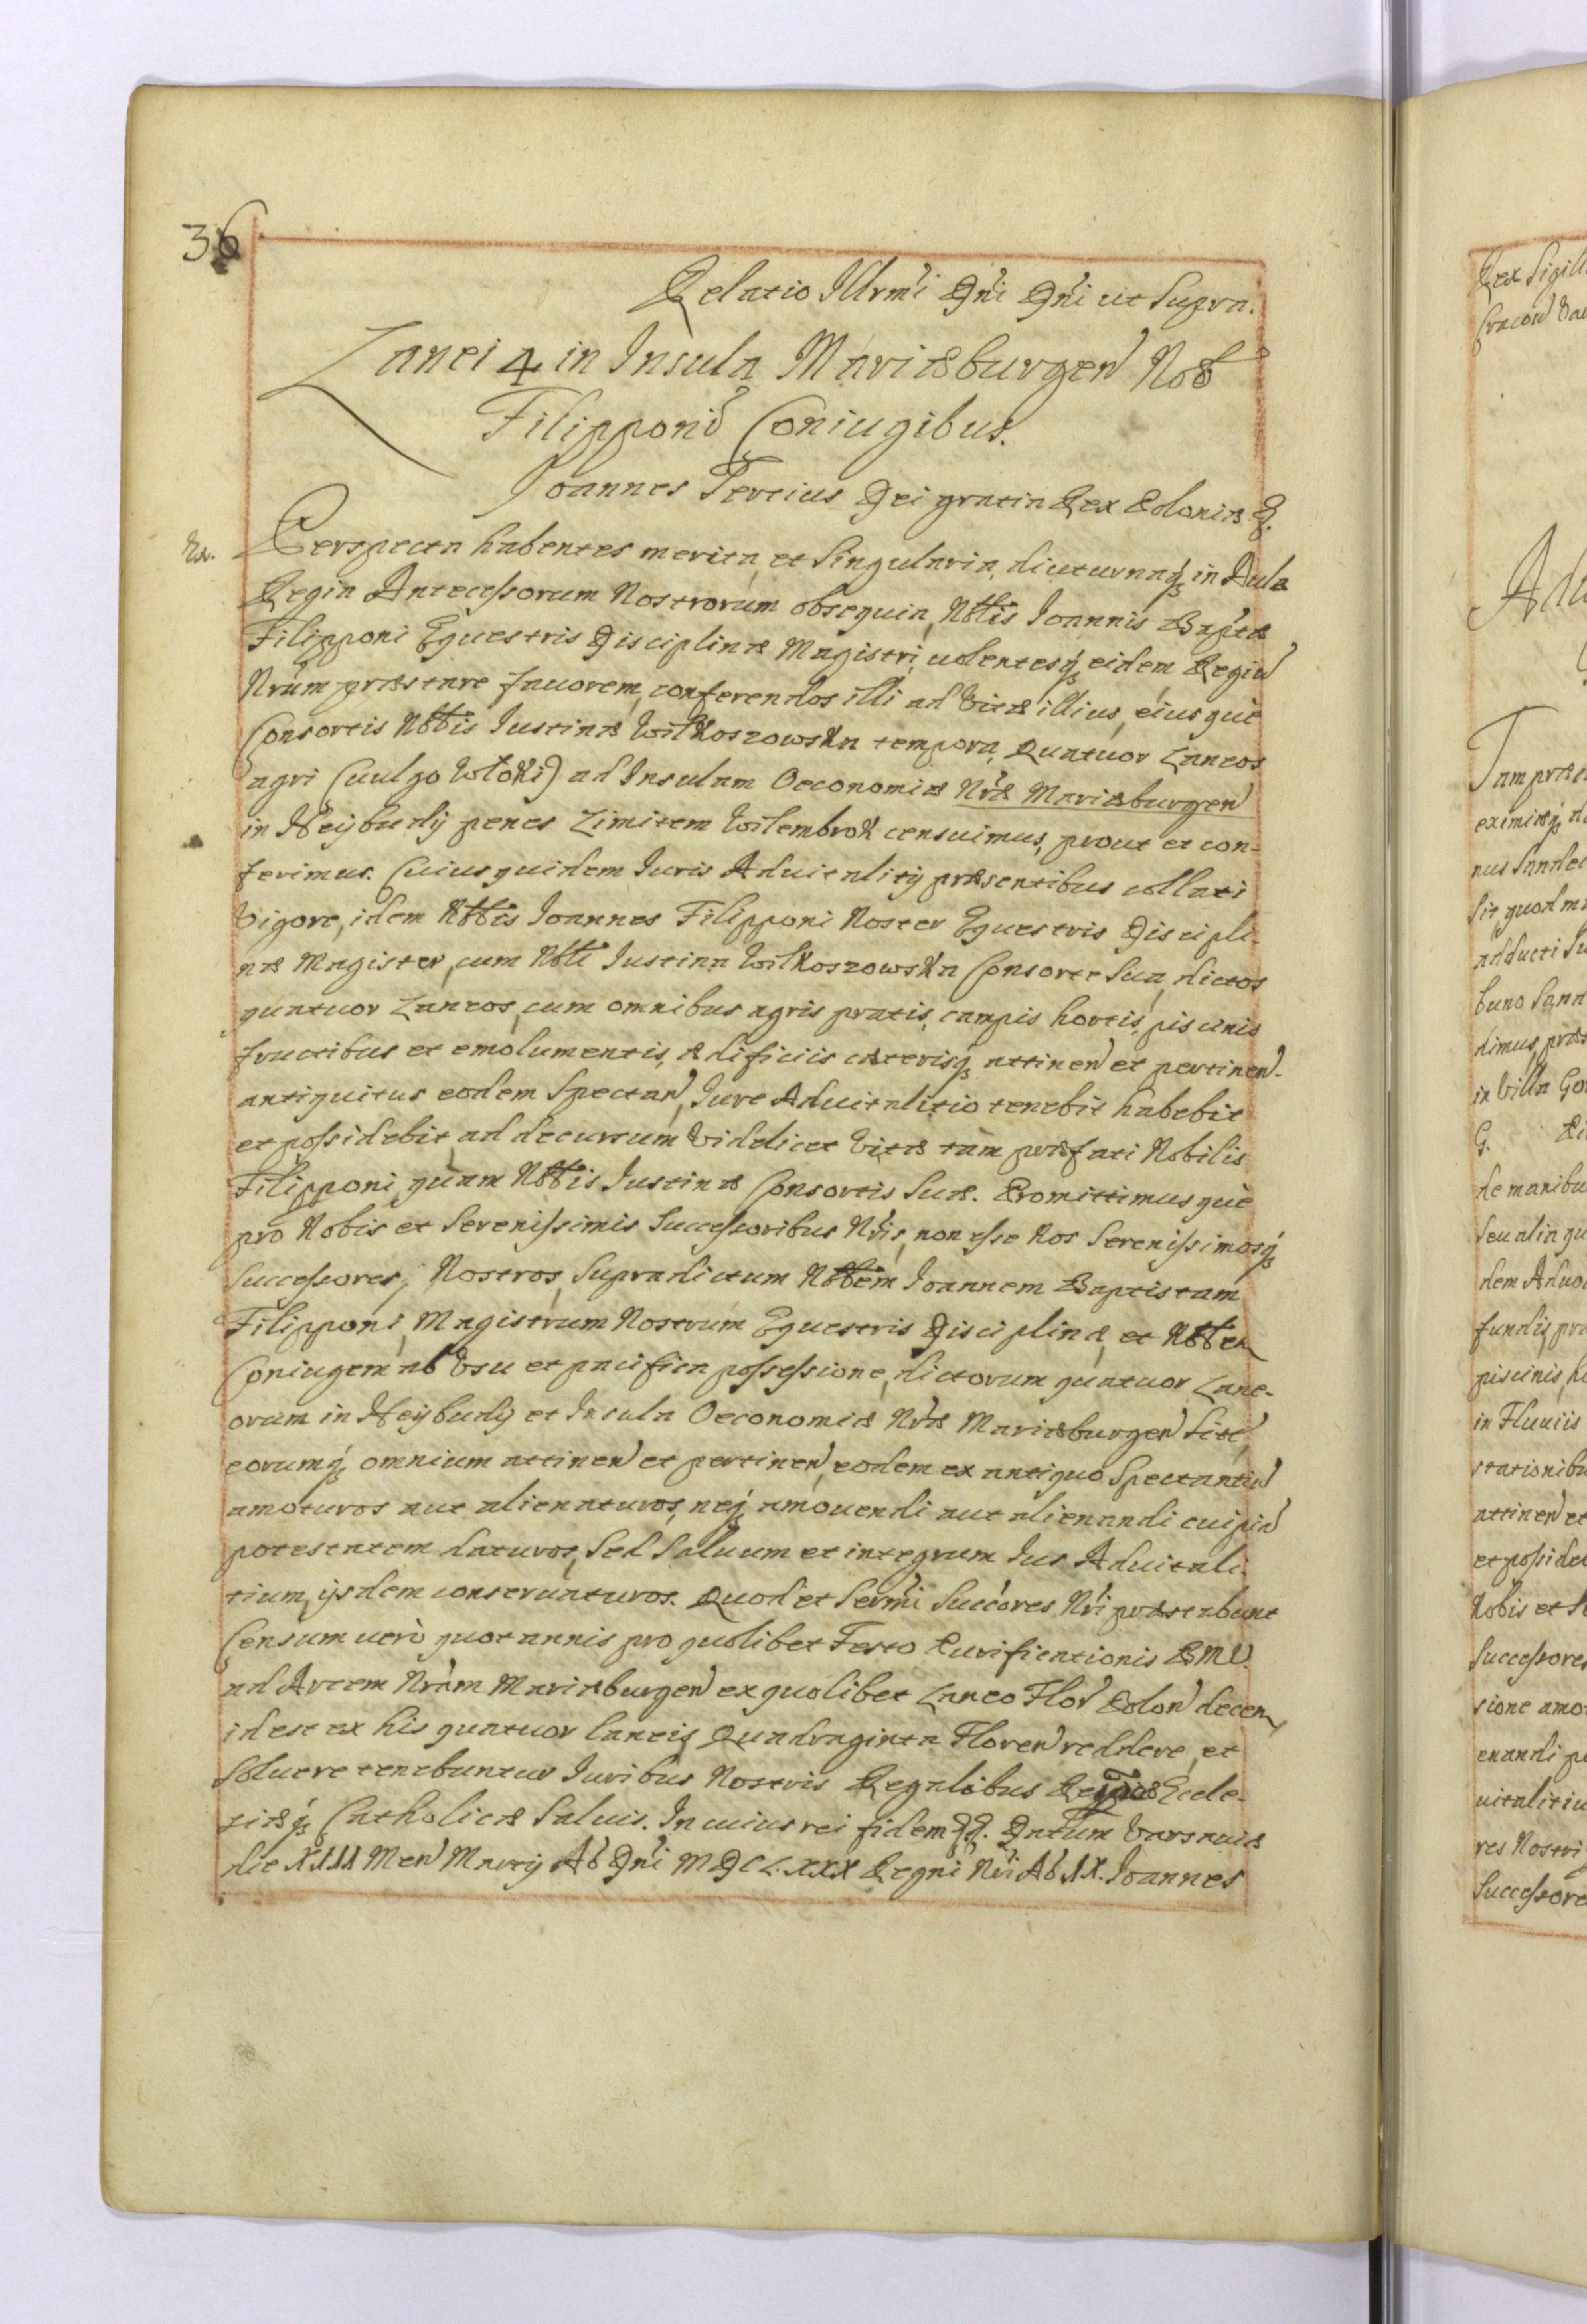 36
Relatio Illrmi Dni Dni ut Supra.
Lanei 4 in Insula Mariæburgen Nob
Filipponi Coniugibus.
Joannes Tertius Dei gratia Rex Poloniæ &.
Rx. Perspecta habentes merita, et Singularia, diuturnaq; in Aula
Regia Antecessorum Nostrorum obsequia, Nobilis Ioannis Baptæ
Filipponi Equestris Disciplinæ Magistri, volentesq; eidem Regiu
Nrum præstare fauorem, conferendos illi ad Vitæ illius, eiusque
Consortis Nobilis Iustinæ Wilkoszowska tempora, Quatuor Laneos
agri (uulgo Włoki) ad Insulam Oeconomiæ Nræ Mariæburgen
in Heybudy penes Limitem Wilembrok censuimus, prout et con-
ferimus. Cuiusquidem Iuris Aduitalitij præsentibus collati
Vigore, idem Nobilis Ioannes Filipponi Noster Equestris Discipli-
næ Magister, cum Nobili Iustina Wilkoszowska Consorte Sua, dictos
quatuor Laneos, cum omnibus agris pratis, campis hortis, piscinis
fructibus et emolumentis, ædificiis cæterisq; attinen et pertinen-
antiquitus eodem Spectan, Iure Aduitalitio tenebit habebit
et possidebit, ad decursum Videlicet Vitæ tam præfati Nobilis
Filipponi, quam Nobilis Iustinæ Consortis Suæ. Promittimusque
pro Nobis et Serenissimis Successoribus Nris, non esse Nos Serenissimosq;
Successores, Nostros, Supradictum Nobilem Ioannem Baptistam
Filipponi, Magistrum Nostrum Equestris Disciplinæ, et Noblem
Coniugem ab Vsu et pacifica possessione, dictorum quatuor Lane-
orum in Heybudy et Insula Oeconomiæ Nræ Mariæburgen Sit
eorumq; omnium attinen et pertinen, eodem ex antiquo Spectantiu
amoturos aut alienaturos, neq; amouendi aut alienandi cuipia
potestatem daturos, Sed Saluum et integrum Ius Aduitali-
tium, ijsdem conseruaturos. Quod et Sermi Succores Nri præstabunt
Censum uerò quotannis pro quolibet Festo Purificationis BMV.
ad Arcem Nram Mariæburgen ex quolibet Laneo Flor Polon decem
idest ex his quatuor laneis Quadraginta Floren reddere, et
Soluere tenebuntur Iuribus Nostris Regalibus Eccle-
siæq; Catholicæ Saluis. In cuius rei fidem &. Datum Varsauiæ
die XIII Men Martij A&#x1d48; Dni MDCLXXX Regni Nri A&#x1d48; IX. Ioannes